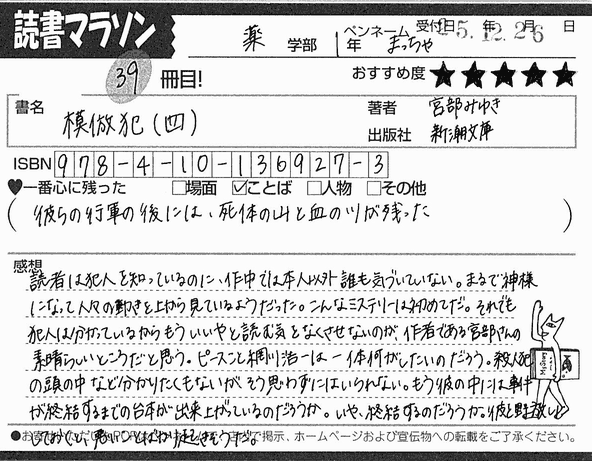 読書マラソン
薬 学部 1年 ペンネーム まっちゃ 受付日 '15.12.26 年 月 日
39 冊目! おすすめ度 ★★★★★
書名 模倣犯(四)
著者 宮部みゆき
出版社 新潮文庫
ISBN 978-4-10-136927-3
♥一番心に残った □場面 ☑ことば □人物 □その他
(彼らの行軍の後には、死体の山と血の川が残った)
感想
読者は犯人を知っているのに、作中では本人以外誰も気づいていない。まるで神様
になって人々の動きを上から見ているようだった。こんなミステリーは初めてだ。それでも
犯人は分かっているからもういいやと読む気をなくさせないのが、作者である宮部さんの
素晴らしいところだと思う。ピースこと網川浩一は一体何がしたいのだろう。殺人犯
の頭の中など分かりたくもないが、そう思わずにはいられない。もう彼の中には事件
が終結するまでの台本が出来上がっているのだろうか。いや、終結するのだろうか。彼を野放しに
しておくと悪いことばかり起きそうだ。
で掲示、ホームページおよび宣伝物への転載をご了承ください。